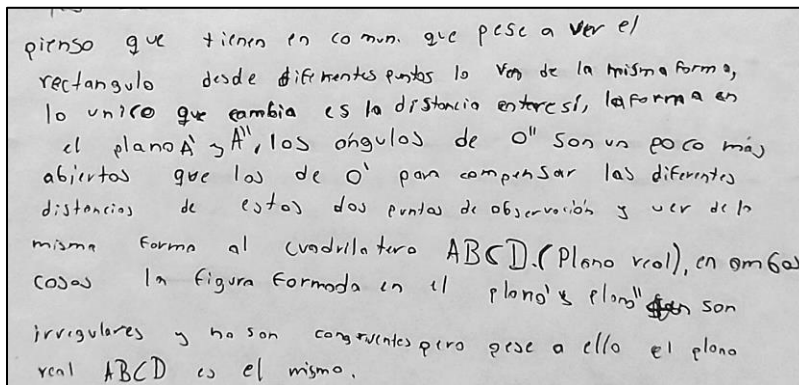 pienso que tienen en comun. que pese a ver el
rectangulo desde difirnentes puntos lo ven de la misma forma,
lo unico que cambia es la distancia entere sí, la forma en
el plano A' y A'', los angulos de O'' son un poco más
abiertos que los de O' para compensar las diferentes
distancias de estos dos puntos de observación y ver de la
misma forma al cuadrilatero ABCD. (Plano real), en ambas
cosas la figura formada en el plano' y plano'' son
irregulares y no son congruentes pero pese a ello el plano
real ABCD es el mismo.